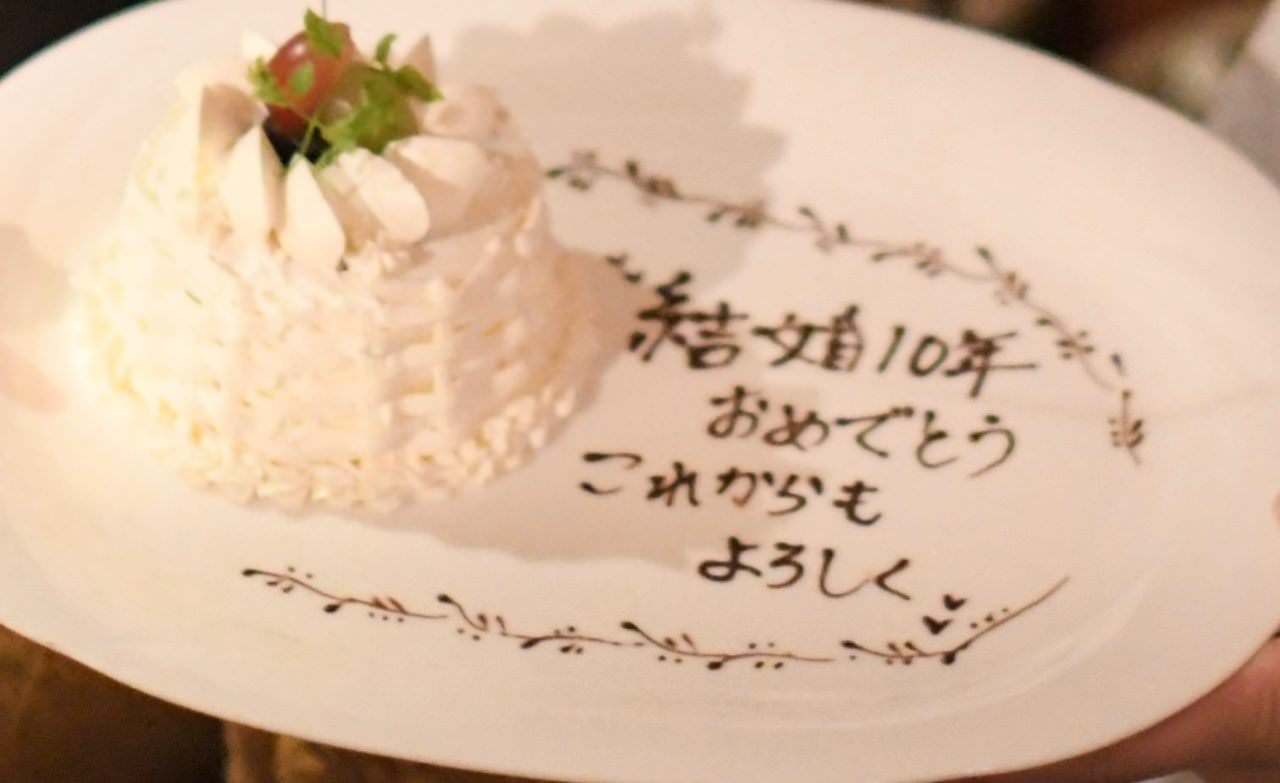 結婚10年
おめでとう
これからも
よろしく